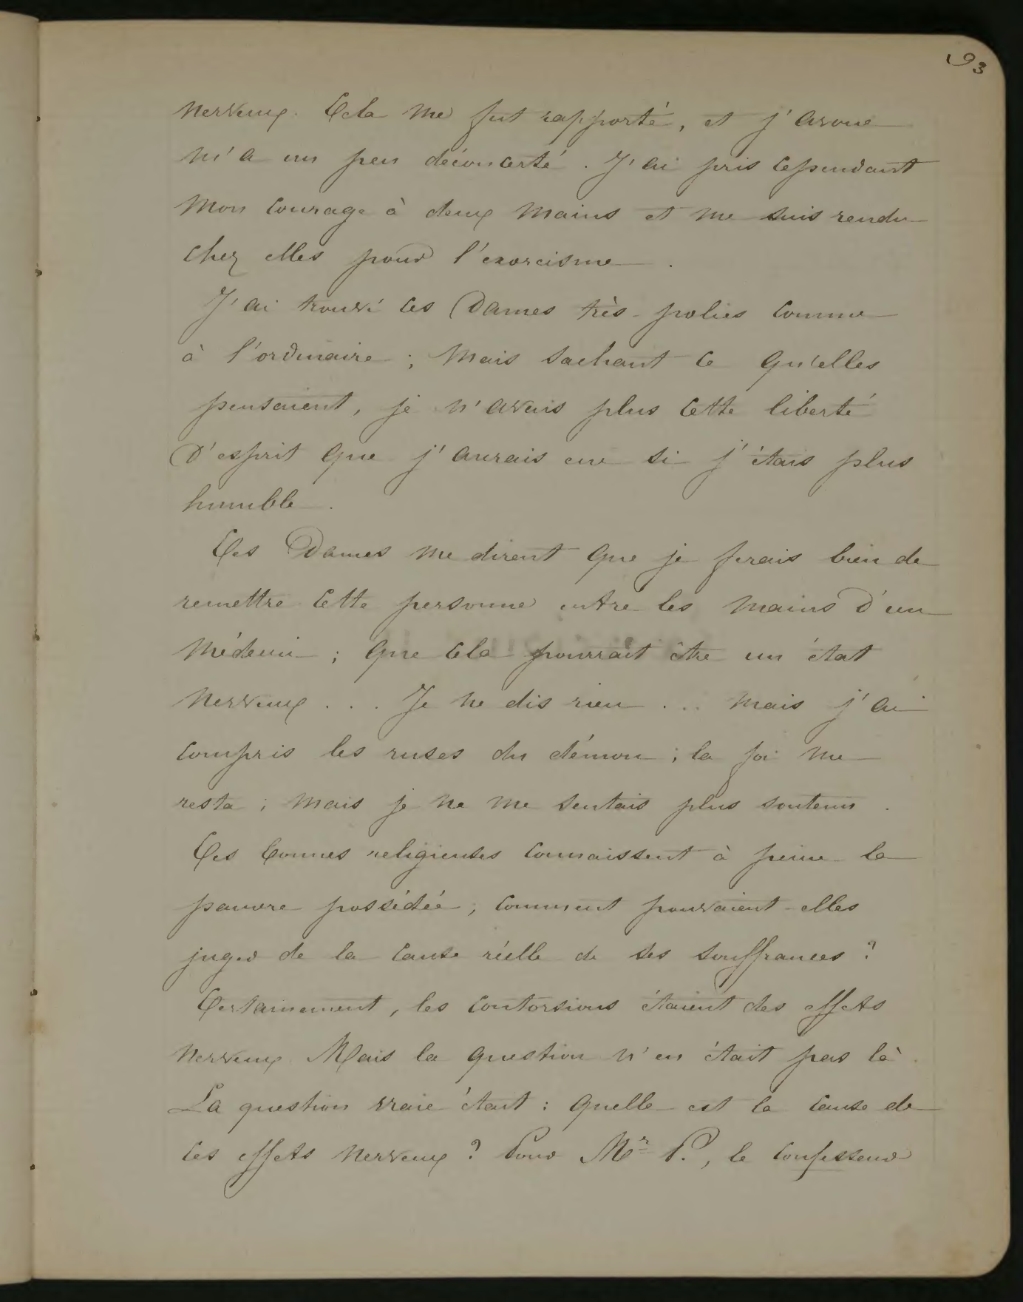 93
nerveux. Cela me fut rapporté, et j'avoue
m'a un peu déconcerté. J'ai pris cependant
mon courage à deux mains et me suis rendu
chez elles pour l'exorcisme.
J'ai trouvé ces Dames très-polies comme
à l'ordinaire ; mais sachant ce qu'elles
pensaient, je n'avais plus cette liberté
d'esprit que j'aurais eue si j'étais plus
humble.
Ces Dames me dirent que je ferais bien de
remettre cette personne entre les mains d'un
médecin ; que cela pourrait être un état
nerveux... Je ne dis rien... mais j'ai
compris les ruses du démon ; la foi me
resta ; mais je ne me sentais plus soutenu.
Ces bonnes religieuses connaissent à peine la
pauvre possédée ; comment pouvaient-elles
juger de la cause réelle de ses souffrances ?
Certainement, les contorsions étaient des effets
nerveux. Mais la question n'en était pas là.
La question vraie étant : quelle est la cause de
ces effets nerveux ? Pour Mr P., le confesseur